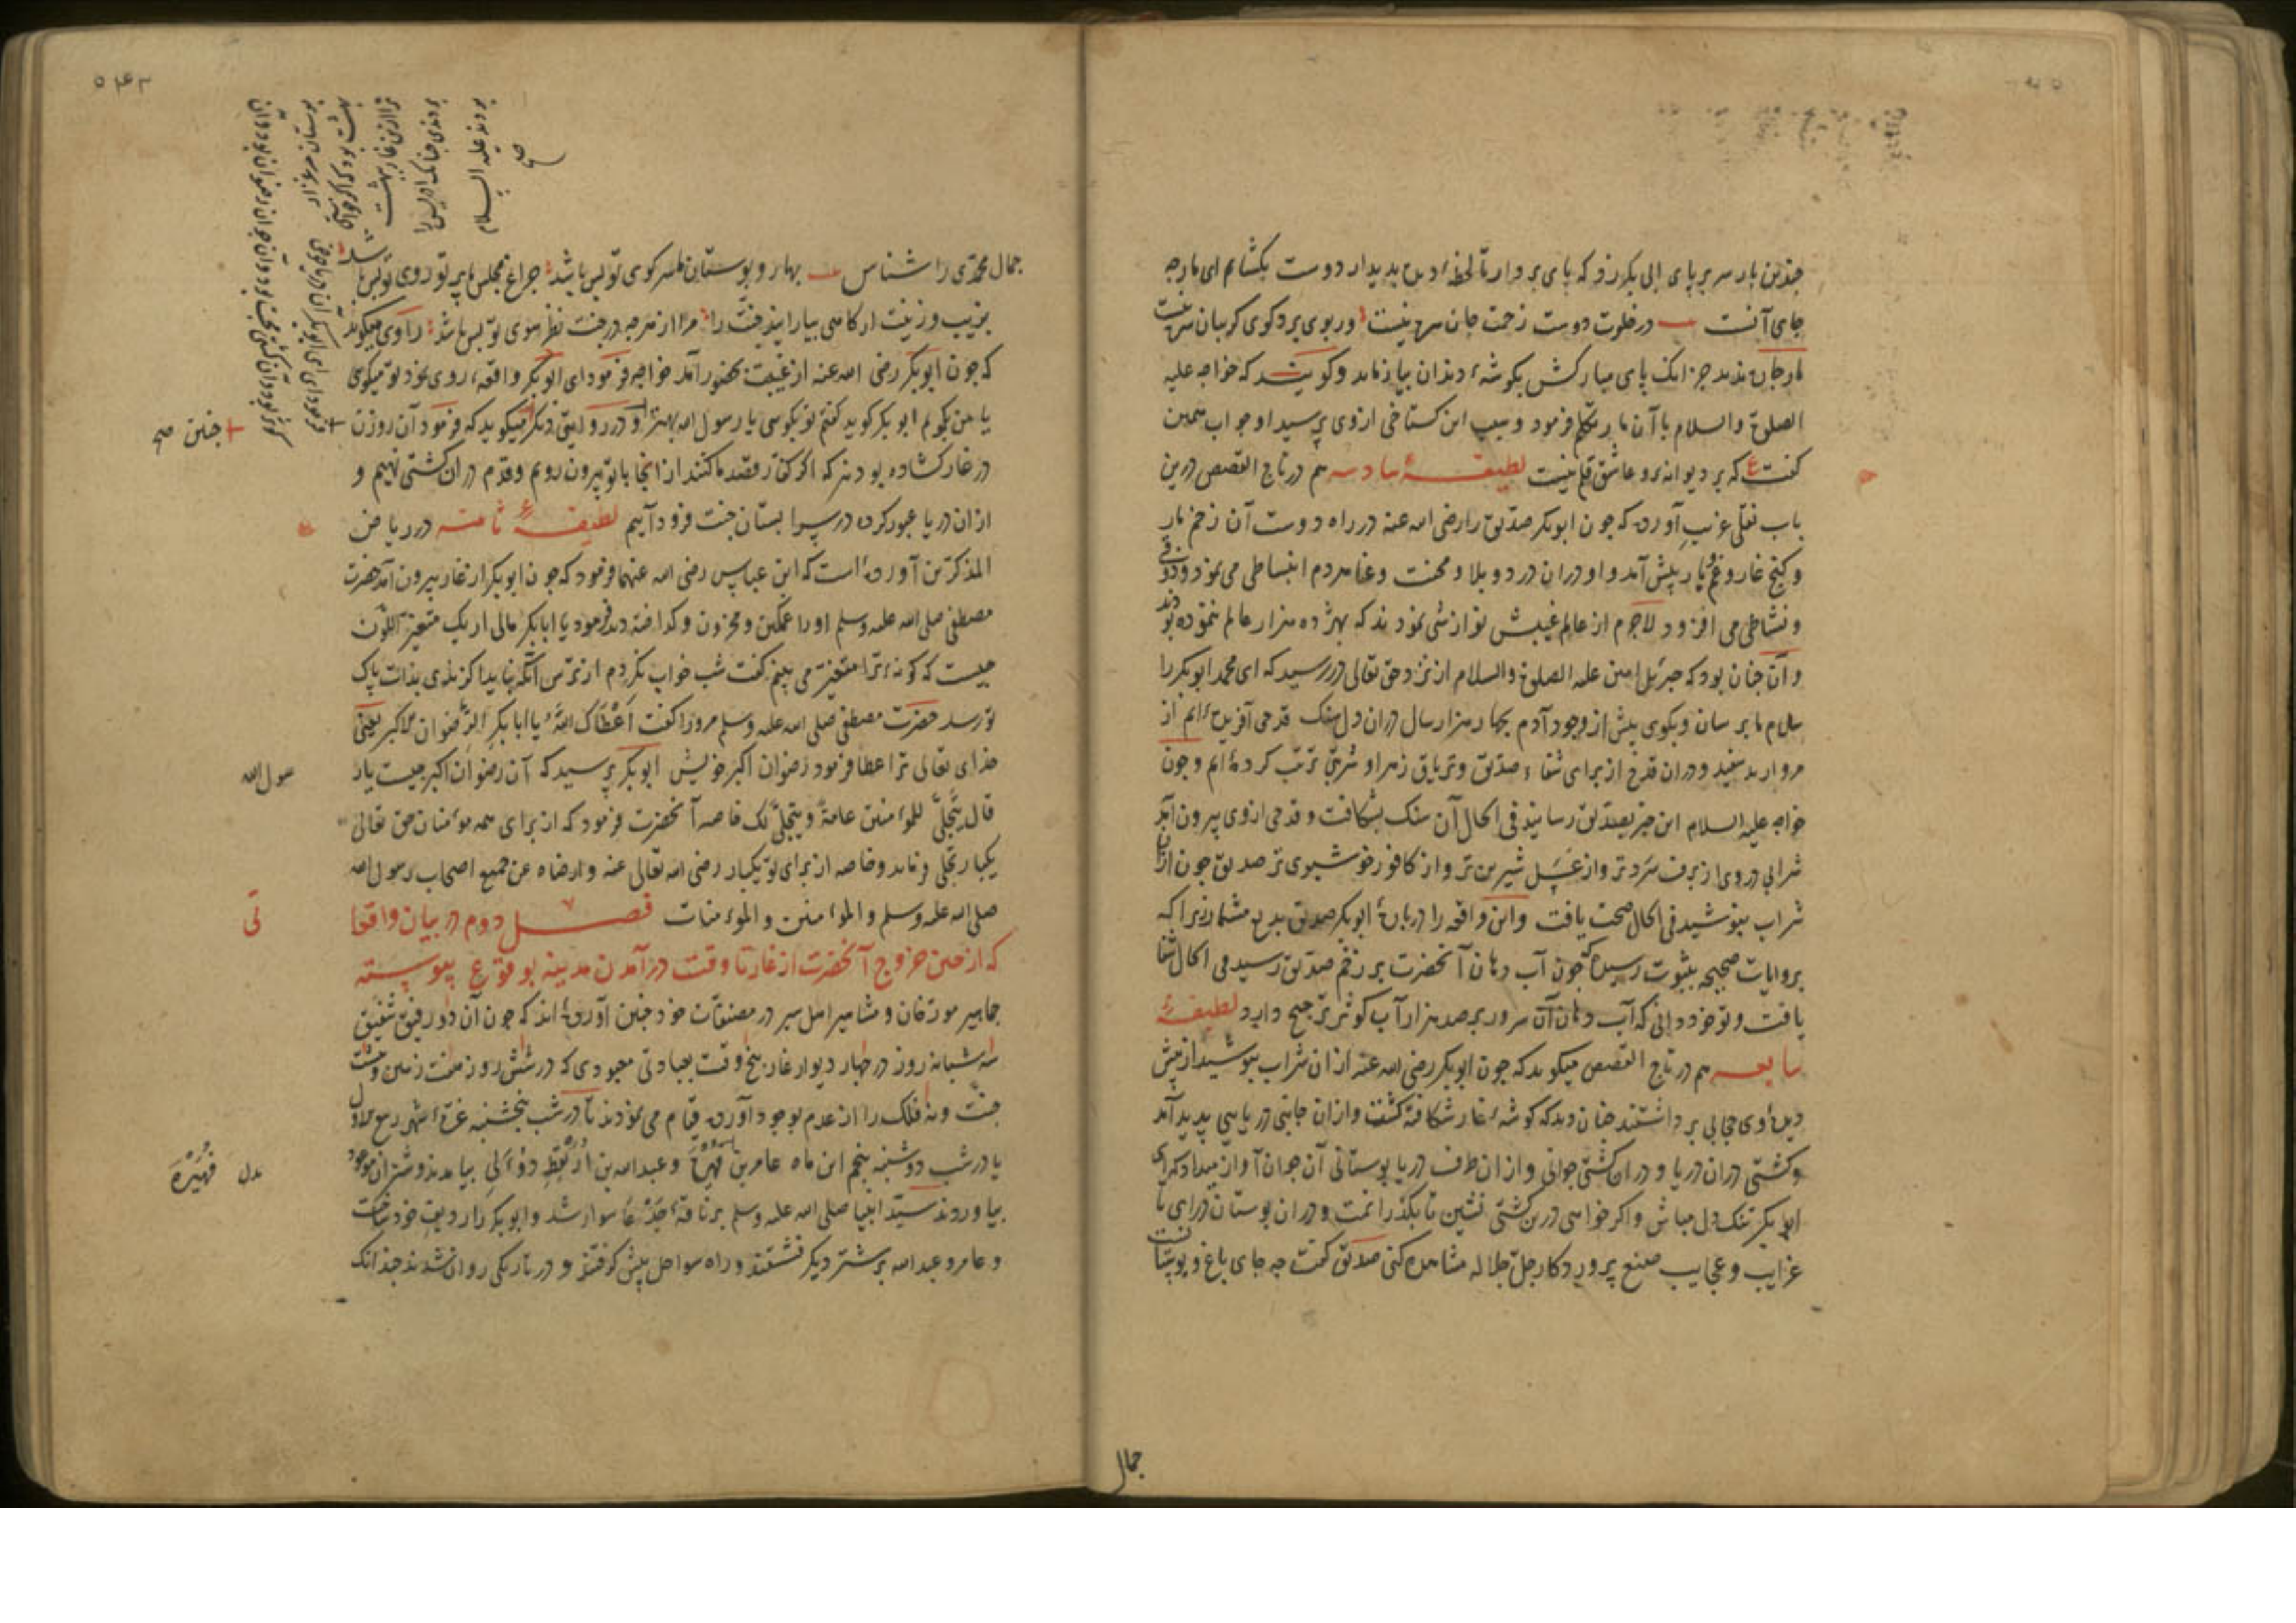 چندین بار سر بر پای ابی بکر زد که پای بردار تا لحظه دیده بدیدار دوست بکشایم ای مار چه
جای آنست در خلوت دوست زحمت جان سر نیست وربوی برد کوی کریبان سر نیست
مار جان ندید جز انک پای مبارکش بکوشه دندان بیازماید و کویند که خواجه علیه
الصلوة والسلام با آن مار تکلم فرمود و سبب این کستاخی ازوی پرسید او جواب همین
کفت که بر دیوانه و عاشق قلم نیست لطیفه سادسه هم در تاج القصص درین
باب نقلی غریب آورده که چون ابوبکر صدیق را رضی الله عنه در راه دوست آن زخم مار
و کنج غار و غم یار پیش آمد و او دران درد و بلا و محنت و عنا مردم انبساطی می نمود و ذوقی
و نشاطی می افزود لاجرم از عالم غیبش نوازشی نمودند که بهژده هزار عالم ننموده بودند
و آن چنان بود که جبرئیل امین علیه الصلوة والسلام از نزد حق تعالی در رسید که ای محمد ابوبکر را
سلام ما برسان و بکوی پیش از وجود آدم بچهار هزار سال دران دل سنک قدحی آفریده ایم از
مروارید سفید و دران قدح از برای شفاء صدیق و تریاق زهر او شربتی ترتیب کرده ایم و چون
خواجه علیه السلام این خبر بصدیق رسانید فی الحال آن سنک بشکافت و قدحی ازوی بیرون آمد
شرابی دروی از برف سردتر و از عسل شیرین تر و از کافور خوشبوی تر صدیق چون ازان
شراب بنوشید فی الحال صحت یافت و این واقعه را درباره ابوبکر صدیق بدیع مشمار زیرا که
بروایات صحیحه بثبوت رسیده که چون آب دهان آنحضرت بر زخم صدیق رسید فی الحال شفا
یافت و تو خود دانی که آب دهان آن سرور بر صد هزار آب کوثر ترجیح دارد لطیفه
سابعه هم در تاج القصص میکوید که چون ابوبکر رضی الله عنه ازان شراب بنوشید از پیش
دیده وی حجابی برداشتند چنان دید که کوشه غار شکافته کشت و ازان جانبی دریایی پدید آمد
و کشتی دران دریا و دران کشتی جوانی و ازان طرف دریا بوستانی آن جوان آواز میداد که ای
ابابکر تنک دل مباش و اکر خواهی درین کشتی نشین تا بکذرانمت و دران بوستان درای تا
غرایب و عجایب صنع پروردکار جل جلاله مشاهده کنی صدیق کفت چه جای باغ و بوستانست
جمال
۵۴۲
جمال محمدی را شناس بهار و بوستان ما سر کوی تو بس باشد چراغ مجلس ما پرتو روی تو بس باشد
بزیب و زینت ار کاهی بیارایند جنت را مرا از هر چه در جنت نظر سوی تو بس باشد راوی میکوید
که چون ابوبکر رضی الله عنه از غیبت بحضور آمد خواجه فرمود ای ابوبکر واقعه روی نمود تو میکوی
یا من بکویم ابوبکر کوید کفتم تو بکوی یا رسول الله بهتر و در روایتی دیکر میکوید که فرمود آن روزن
در غار کشاده بودند که اکر کفار قصد ما کنند از اینجا با تو بیرون رویم و قدم دران کشتی نهیم و
ازان دریا عبور کرده در سرا بستان جنت فرود آییم لطیفه ثامنه در ریاض
المذکرین آورده است که ابن عباس رضی الله عنهما فرمود که چون ابوبکر از غار بیرون آمد حضرت
مصطفی صلی الله علیه وسلم او را غمکین و محزون و کداخته دید فرمود یا ابابکر مالی اریک متغیر اللون
چیست که کونه ترا متغیر می بینم کفت شب خواب نکردم از ترس آنکه نباید کزندی بذات پاک
تو رسد حضرت مصطفی صلی الله علیه وسلم مرورا کفت اعطاک الله یا ابابکر الرضوان الاکبر یعنی
خدای تعالی ترا عطا فرمود رضوان اکبر خویش ابوبکر پرسید که آن رضوان اکبر چیست یار
سول الله
قال یتجلی للمؤمنین عامة ویتجلی لک خاصه آنحضرت فرمود که از برای همه مؤمنان حق تعالی
یکبار تجلی فرماید و خاصه از برای تو یکبار رضی الله تعالی عنه وارضاه عن جمیع اصحاب رسول الله
صلی الله علیه وسلم والمؤمنین والمؤمنات فصل دوم در بیان واقعا
تی
که از حین خروج آنحضرت از غار تا وقت درآمدن مدینه بوقوع پیوسته
جماهیر مورخان و مشاهیر اهل سیر در مصنفات خود چنین آورده اند که چون آن دو رفیق شفیق
سه شبانه روز در چهار دیوار غار بپنج وقت بعبادتی معبودی که در شش روز هفت زمین و هشت
جنت و نه فلک را از عدم بوجود آورده قیام می نمودند تا در شب پنجشنبه غره شهر ربیع الاول
یا در شب دوشنبه پنجم این ماه عامر بن فهیره و عبدالله بن ارقط دؤلی بیامدند و شتران موعود
بدل فهیره
بیاوردند سید انبیا صلی الله علیه وسلم بر ناقه جدعا سوار شد و ابوبکر را ردیف خود ساخت
و عامر و عبدالله بر شتر دیکر نشستند و راه سواحل پیش کرفتند و در تاریکی روان شدند چندانک
چنین صح